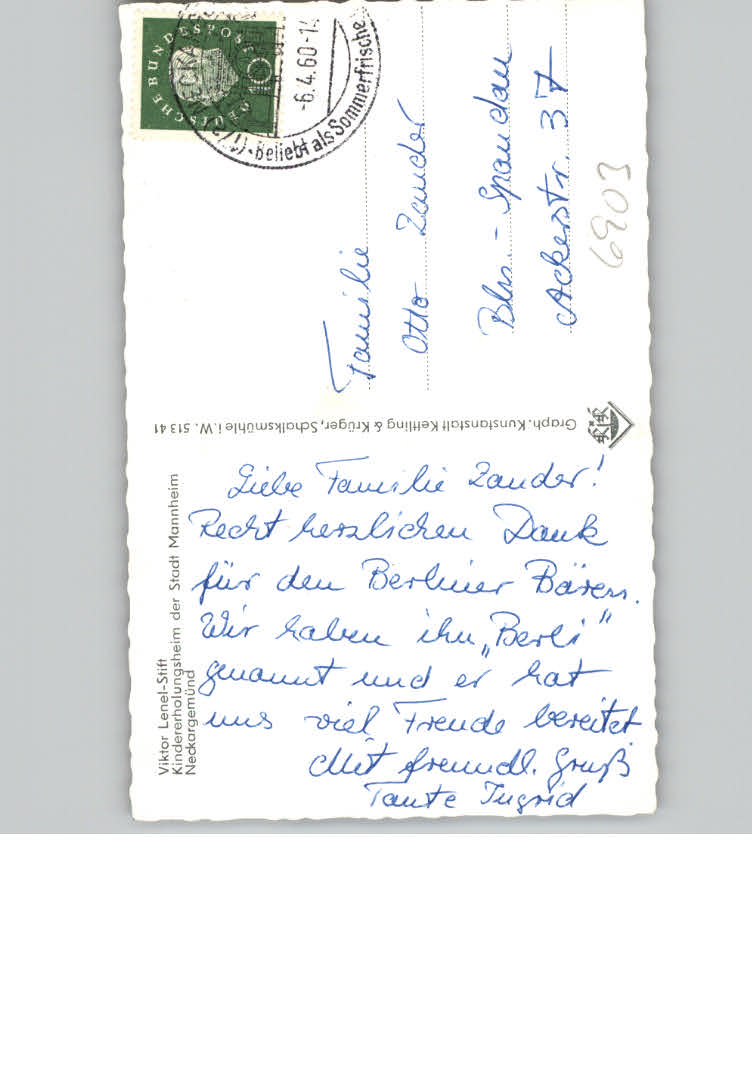 Viktor Lenel-Stift
Kindererholungsheim der Stadt Mannheim
Neckargemünd
Liebe Familie Zander!
Recht herzlichen Dank
für den Berliner Bären.
Wir haben ihn „Berli"
genannt und er hat
uns viel Freude bereitet
Mit freundl. Gruß
Tante Ingrid
Graph. Kunstanstalt Kettling & Krüger, Schalksmühle i.W. 51341
DEUTSCHE BUNDESPOST
10
-6.4.60-14
Beliebt als Sommerfrische
Familie
Otto Zander
Bln. - Spandau
Ackerstr. 37
6903